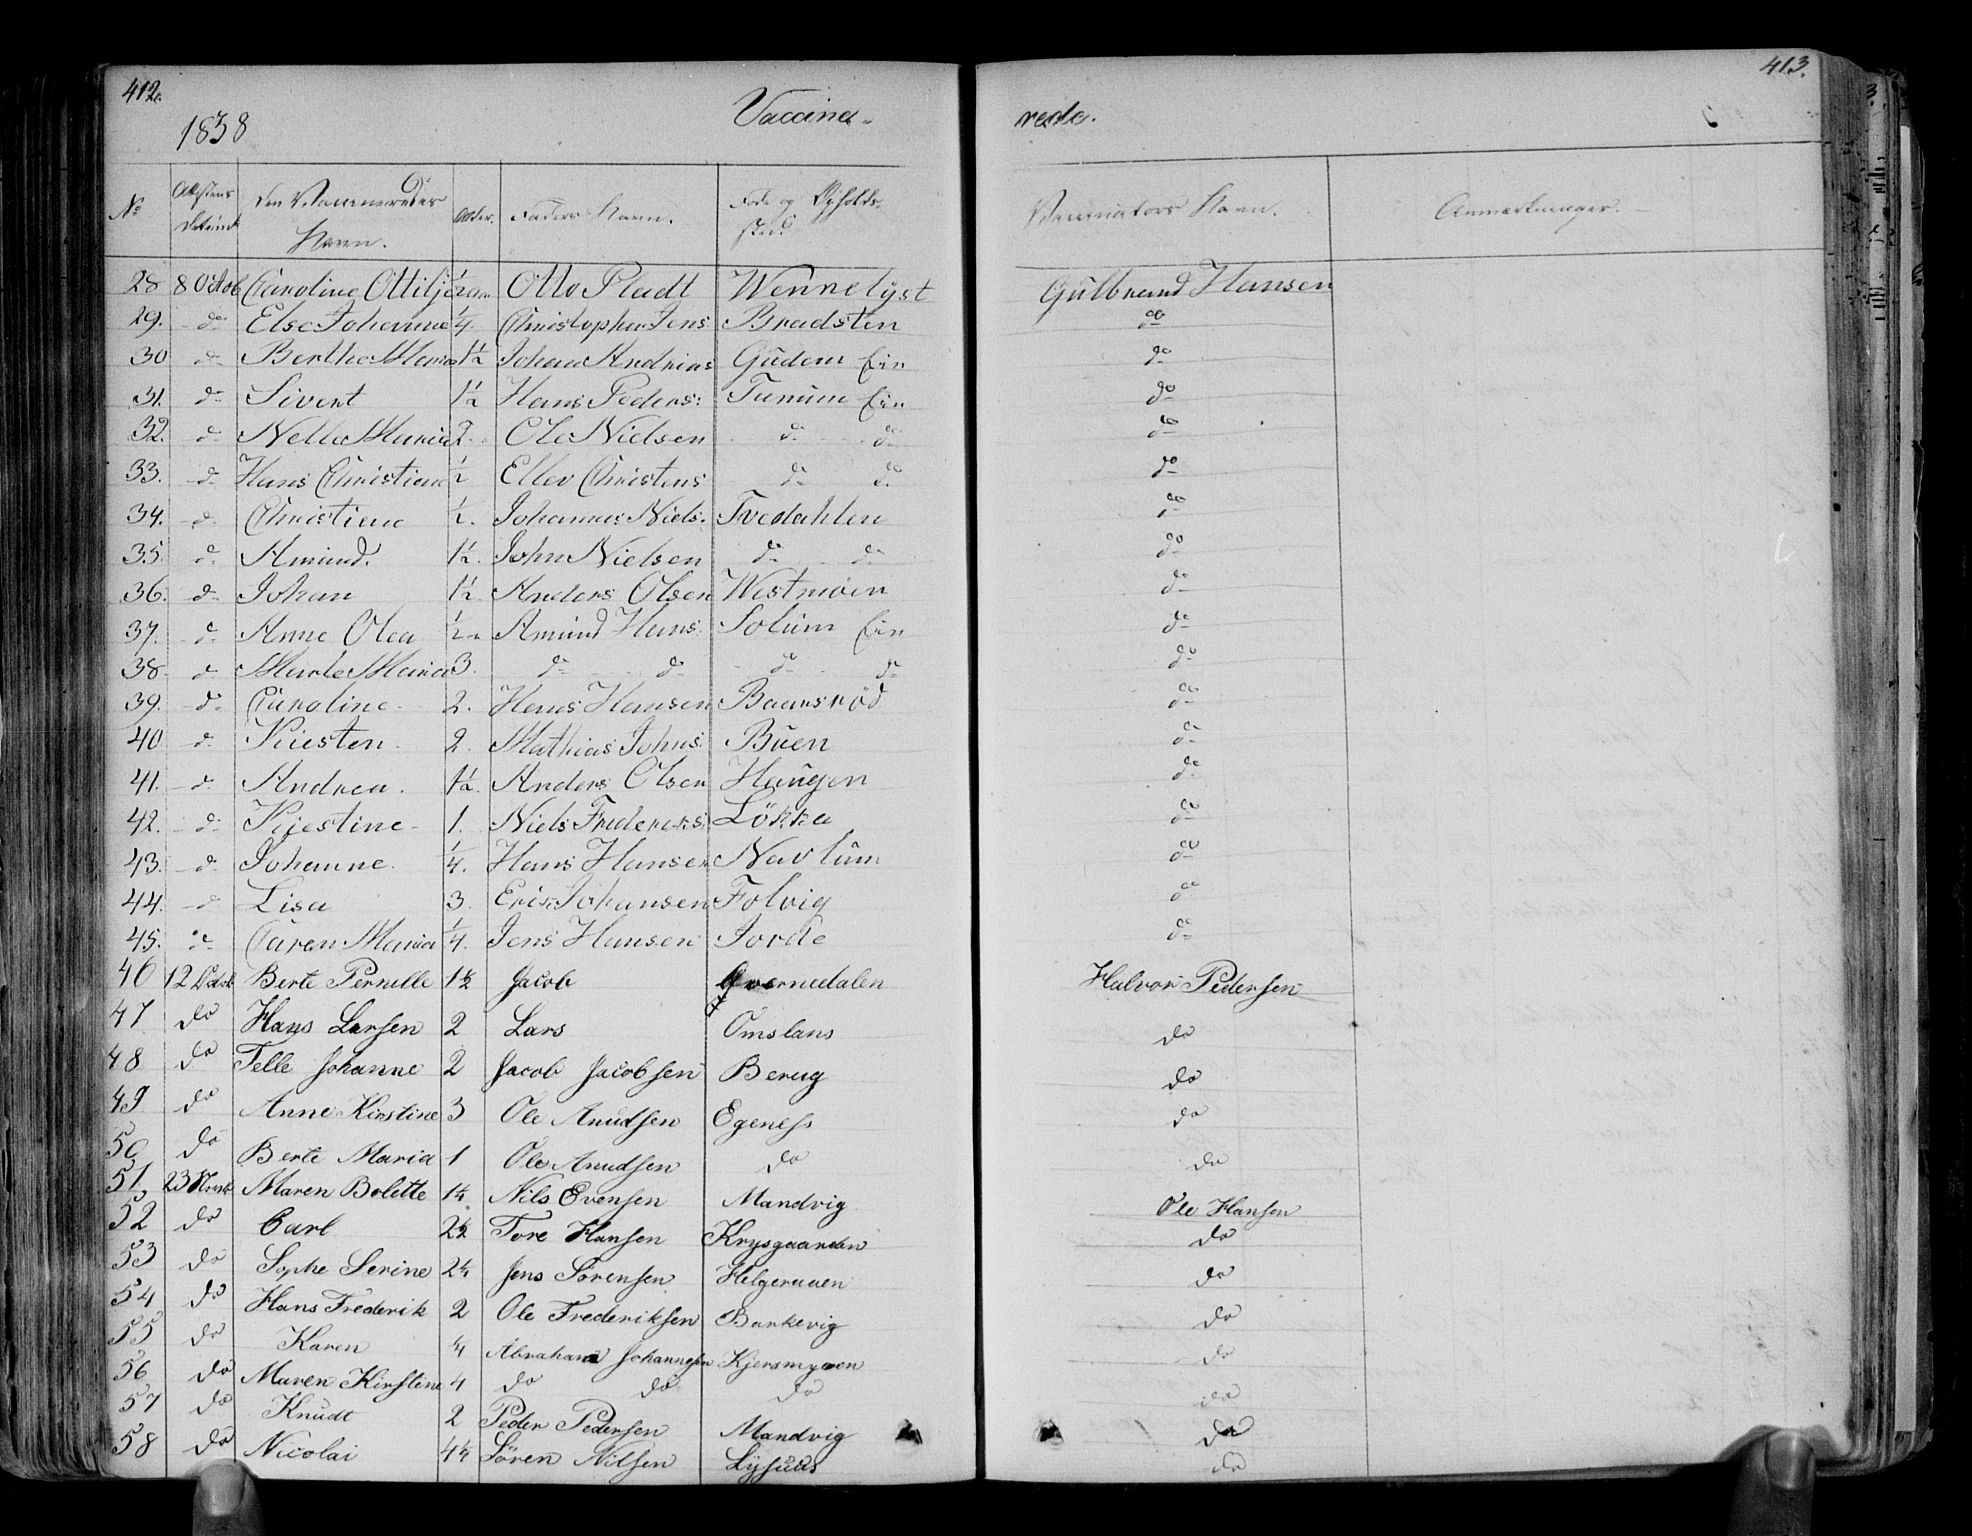 412.
1838
Vaccine-
rede.
413.
No | Attestens Datum | Den Vaccineredes Navn. | Alder. | Faders Navn. | Føde og Opholds-sted. | Vaccinators Navn. | Anmærkninger.
28 | 8 Octob | Caroline Ottilje | ½ aar | Otto Pladt | Wennelÿst | Gulbrand Hansen
29. | do | Else Johanne | ¼. | Christopher Jens | Bradsten | do
30 | do | Berthe Maria | 1½ | Johan Andreas | Gudem Ein | do
31. | do | Sivert | 1½ | Hans Peders: | Tunum Ein | do
32. | do | Nelle Maria | 2. | Ole Nielsen | do do | do
33. | do | Hans Christian | ½ | Ellev Christens | do do | do
34. | do | Christiane | ½. | Johannes Niels. | Tvedahlen | do
35. | do | Amund. | 1½. | John Nielsen | do do | do
36. | do | Johan | 1½ | Anders Olsen | Westmøen | do
37. | do | Anne Olea | ½ | Amund Hans: | Solum Ein | do
38. | do | Marte Maria | 3. | do do | do do | do
39. | do | Caroline. | 2. | Hans Hansen | Baansrød | do
40 | do | Kiesten. | 2. | Mathias Johns. | Buen | do
41. | do | Andrea. | 1½. | Anders Olsen | Haugen | do
42. | do | Kjestine | 1. | Niels Frederiks: | Løkka | do
43. | do | Johanne. | ¼. | Hans Hansen | Navlum | do
44. | do | Lisa | 3. | Erik Johansen | Folvig | do
45. | do | Caren Maria | ¼. | Jens Hansen | Jorde | do
46 | 12 Octob | Berte Pernille | 1½ | Jacob | Qvernedalen | Halvor Pedersen
47 | do | Hans Larsen | 2 | Lars | Omslans | do
48 | do | Telle Johanne | 2 | Jacob Jacobsen | Berug | do
49 | do | Anne Kirstine | 3 | Ole Anudsen | Egeness | do
50 | do | Berte Maria | 1 | Ole Anudsen | do | do
51. | 23 | Maren Bolette | 1¼ | Nils Evensen | Mandvig | Ole Hansen
52 | do | Carl | 2½ | Tore Hansen | Krysgaarden | do
53 | do | Sophe Serine | 2¼ | Jens Sørensen | Helgeraaen | do
54 | do | Hans Frederik | 2 | Ole Frederiksen | Barkevig | do
55 | do | Karen | ¼ | Abraham Johannesen | Kjersmyren | do
56 | do | Maren Kirstine | 4 | do do | do | do
57 | do | Knudt | 2 | Peder Pedersen | Mandvig | do
58 | do | Nicolai | 4¼ | Søren Nilsen |  | do